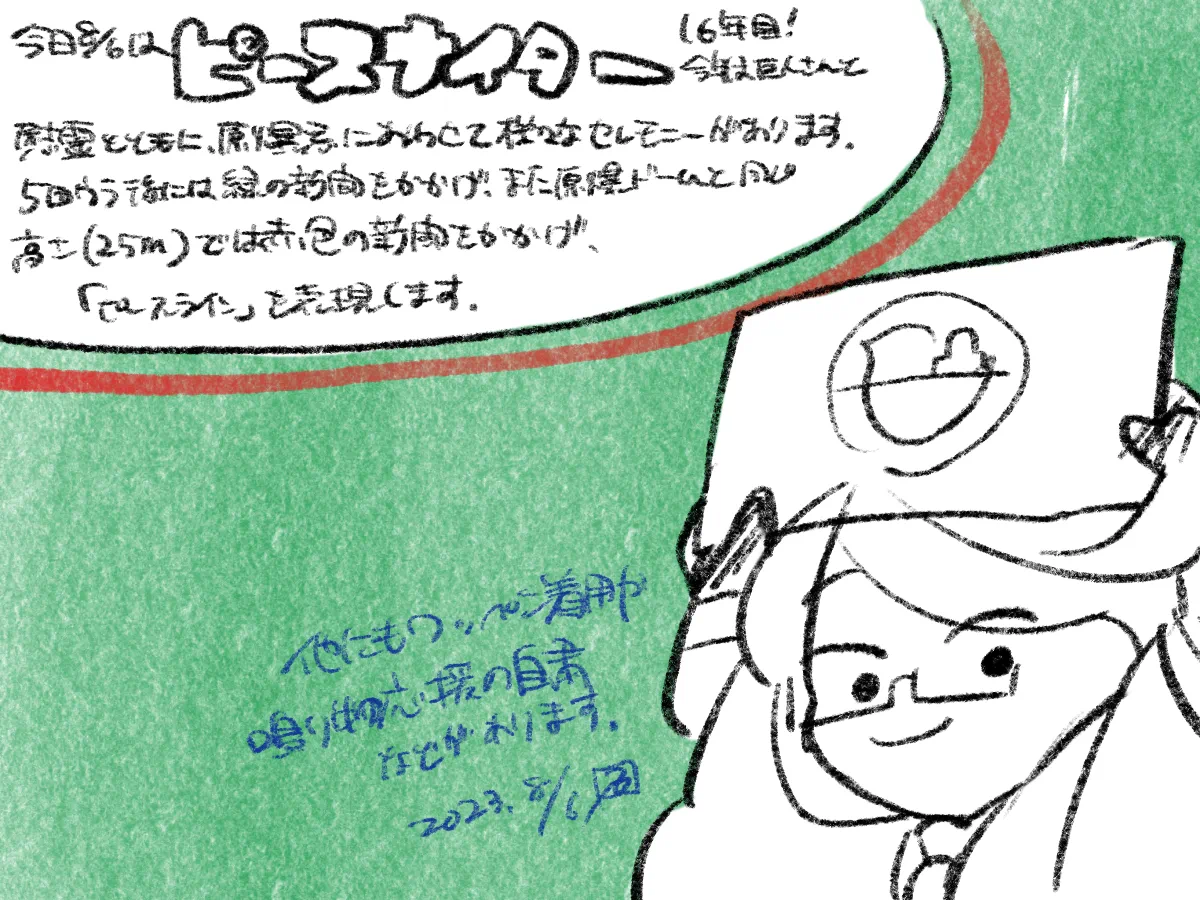 今日8/6は ピースナイター 16年目!
今年は巨人さんと
慰霊とともに、原爆忌にあわせて様々なセレモニーがあります。
5回ウラ後には緑の新聞をかかげ、また原爆ドームと同じ
高さ(25m)では赤色の新聞をかかげ、
「ピースライン」を表現します。
他にもワッペン着用や
鳴り物応援の自粛
などがあります。
2023.8/6